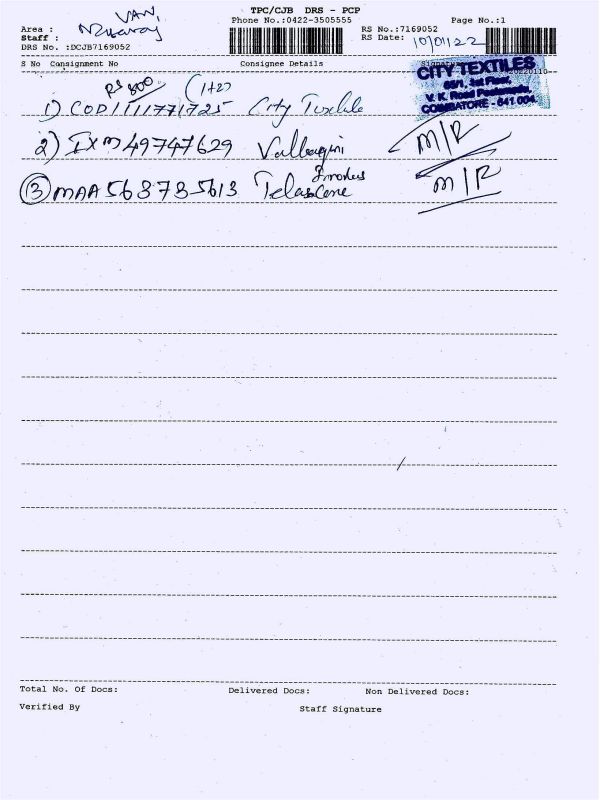 TPC/CJB DRS - PCP
Phone No.:0422-3505555 Page No.:1
Area : VAN,
Staff :
RS No.:7169052
DRS No. :DCJB7169052 RS Date: 10/01/22
S No Consignment No Consignee Details Signature
CITY TEXTILES
1st Floor,
V. K. Road
COIMBATORE - 641 004.
Rs 800 (1+2)
1) COD1111771725 City Textile
2) IXM49747629 M/R
3) MAA568785613 M/R
Total No. Of Docs: Delivered Docs: Non Delivered Docs:
Verified By Staff Signature